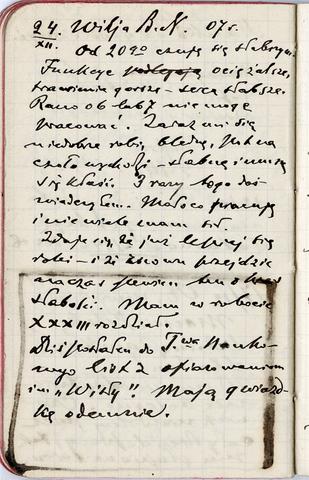 24. Wilja B.N. 07 r.
XII.
Od 20go czuję się słabszym.
Funkcje ociężalsze,
trawienie gorsze – serce słabsze.
Rano 06 lub 7 nie mogę
pracować. Zaraz mi się
niedobrze robi, blednę, pot na
czoło wychodzi – słabnę i muszę
się kłaść. 3 razy tego doś-
wiadczyłem. Mało co pracuję
i niewiele mam sił.
Zdaje się, że już lepiej się
robi – i że znowu przejdzie
na czas pewien ten
słabości. Mam w robocie
XXXIII rozdział.
Dziś posłałem do T.wa Nauko-
wego list z ofiarowaniem
im „Wisły". Mają gwiazd-
kę odemnie.